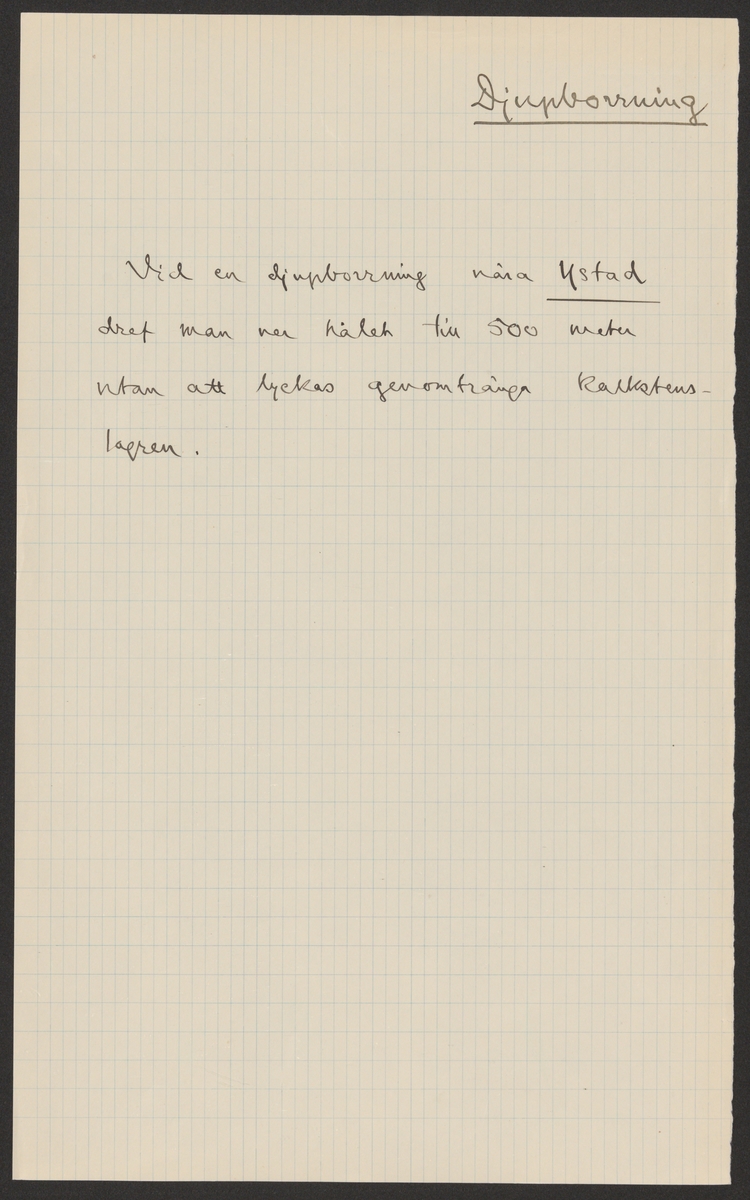 Djupborrning
Vid en djupborrning nära Ystad
dref man ner hålet till 500 meter
utan att lyckas genomtränga kalkstens-
lagren.